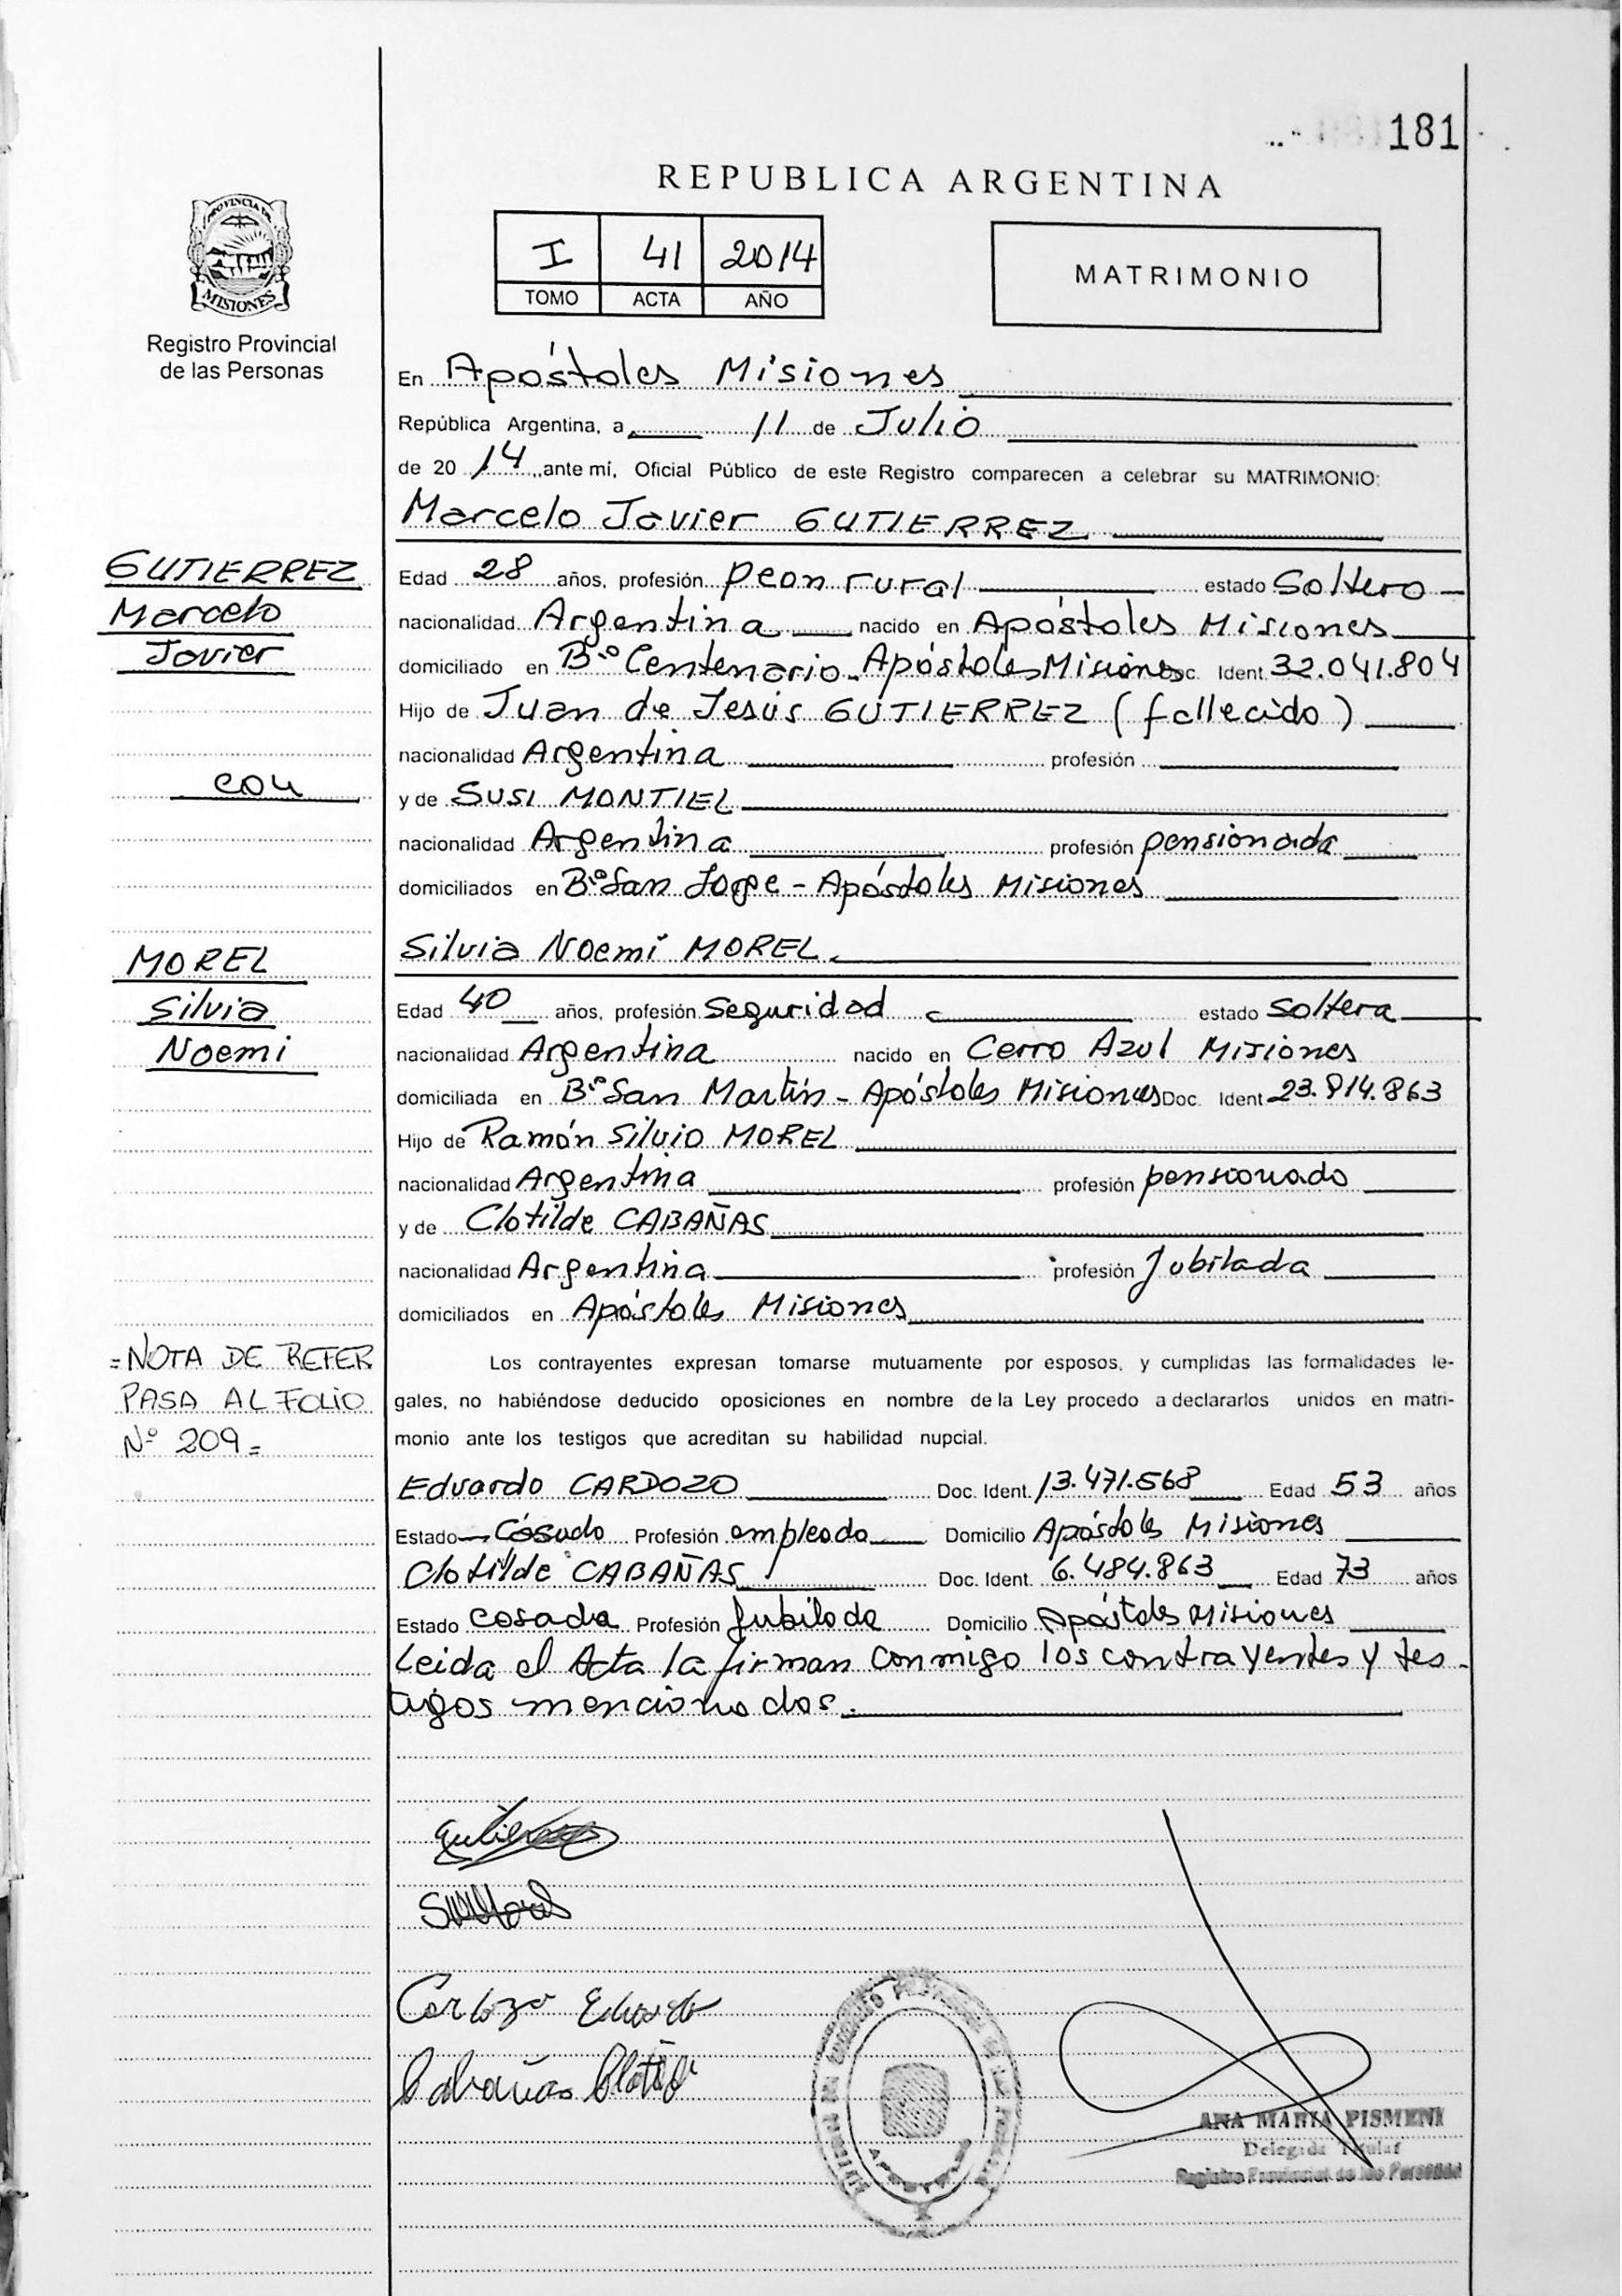 181
REPUBLICA ARGENTINA
PROVINCIA DE
MISIONES
Registro Provincial
de las Personas
I 41 2014
TOMO ACTA AÑO
MATRIMONIO
En Apóstoles Misiones
República Argentina, a 11 de Julio
de 20 14 ante mí, Oficial Público de este Registro comparecen a celebrar su MATRIMONIO:
Marcelo Javier GUTIERREZ
GUTIERREZ
Marcelo
Javier
con
MOREL
Silvia
Noemi
=NOTA DE REFER
PASA AL FOLIO
Nº 209=
Edad 28 años, profesión peon rural estado Soltero
nacionalidad Argentina nacido en Apóstoles Misiones
domiciliado en Bº Centenario - Apóstoles Misiones Doc. Ident. 32.041.804
Hijo de Juan de Jesús GUTIERREZ (fallecido)
nacionalidad Argentina profesión
y de SUSI MONTIEL
nacionalidad Argentina profesión pensionada
domiciliados en Bº San Jorge - Apóstoles Misiones
Silvia Noemí MOREL
Edad 40 años, profesión Seguridad estado Soltera
nacionalidad Argentina nacido en Cerro Azul Misiones
domiciliada en Bº San Martín - Apóstoles Misiones Doc. Ident 23.814.863
Hijo de Ramón Silvio MOREL
nacionalidad Argentina profesión pensionado
y de Clotilde CABAÑAS
nacionalidad Argentina profesión Jubilada
domiciliados en Apóstoles Misiones
Los contrayentes expresan tomarse mutuamente por esposos, y cumplidas las formalidades le-
gales, no habiéndose deducido oposiciones en nombre de la Ley procedo a declararlos unidos en matri-
monio ante los testigos que acreditan su habilidad nupcial.
Eduardo CARDOZO Doc. Ident. 13.471.568 Edad 53 años
Estado Casado Profesión empleado Domicilio Apóstoles Misiones
Clotilde CABAÑAS Doc. Ident. 6.484.863 Edad 73 años
Estado casada Profesión Jubilada Domicilio Apóstoles Misiones
Leida el Acta la firman conmigo los contrayentes y tes-
tigos mencionados.
Gutierrez
Cardozo Eduardo
Cabañas Clotilde
ANA MARIA PISMENI
Delegada Titular
Registro Provincial de las Personas